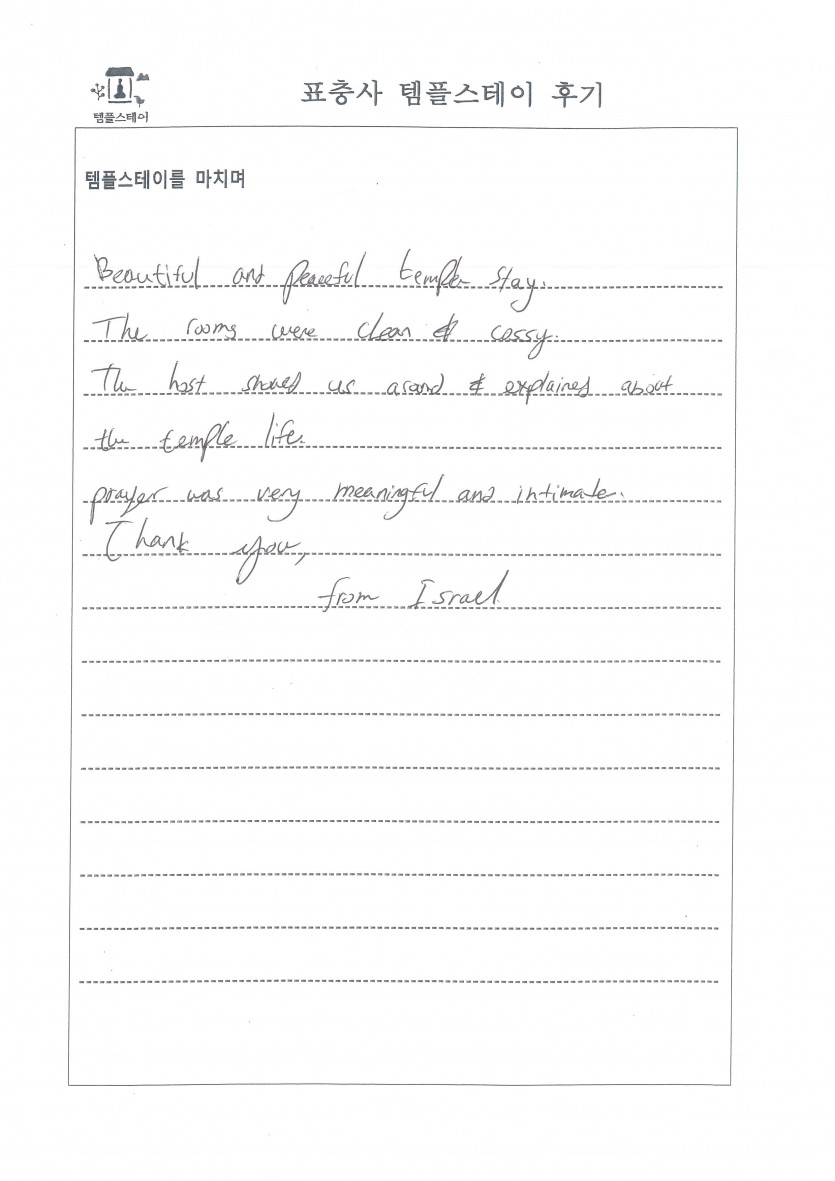 템플스테이
표충사 템플스테이 후기
템플스테이를 마치며
Beautiful and peaceful temple stay.
The rooms were clean & cossy.
The host showed us around & explained about
the temple life.
prayer was very meaningful and intimate.
Thank you,
from Israel